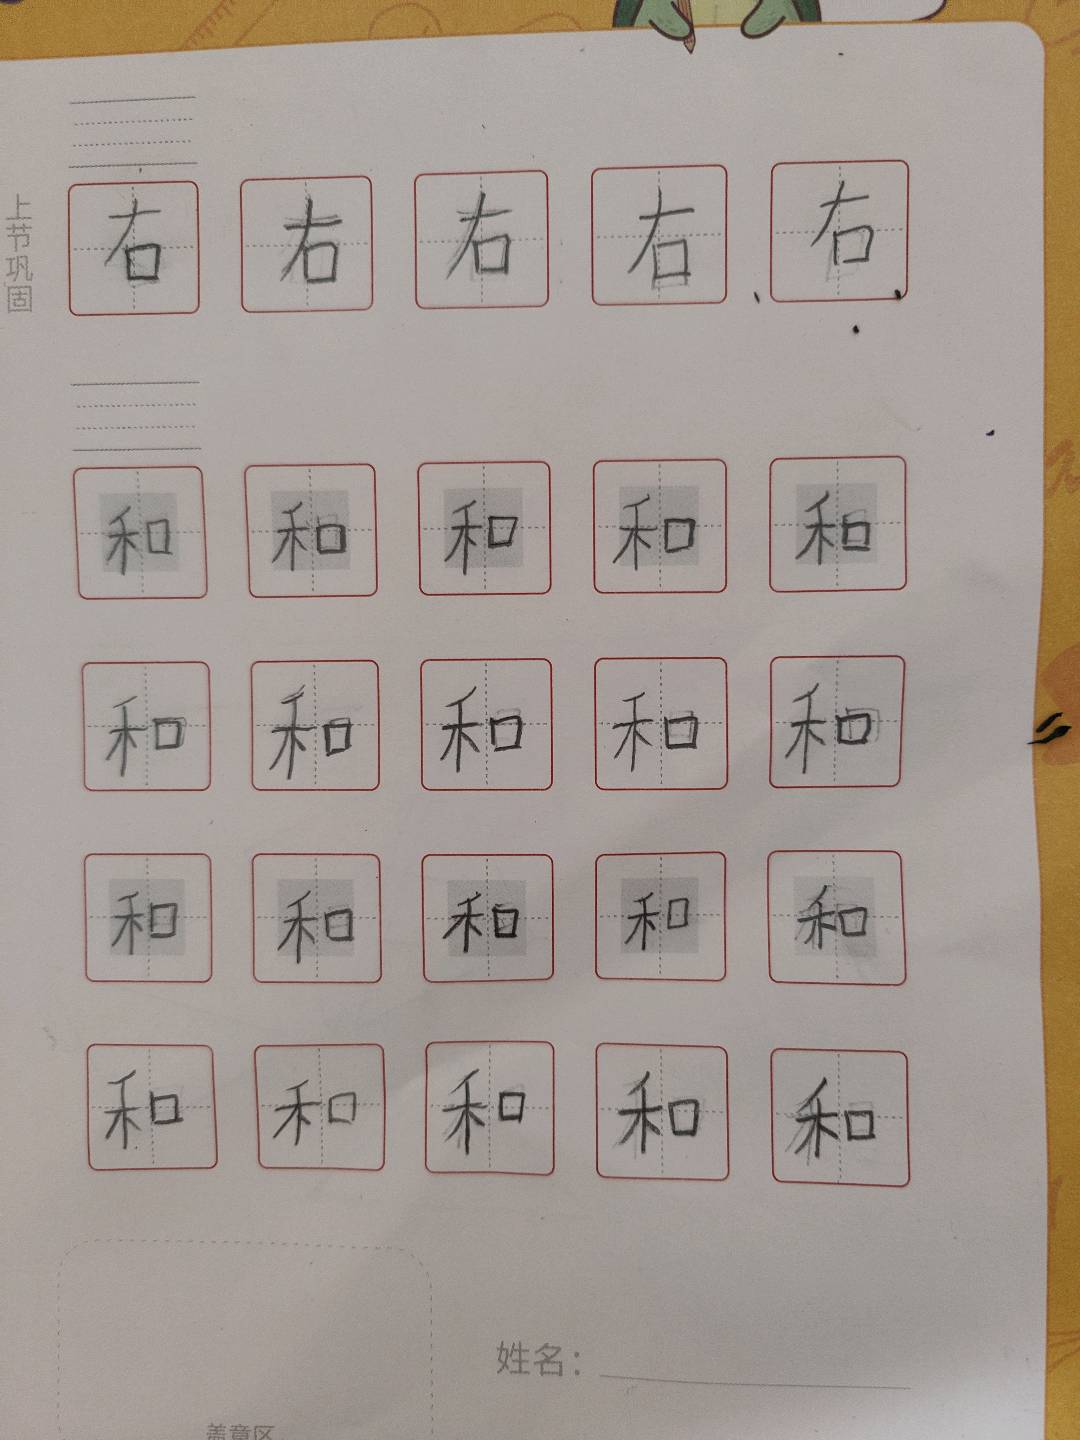 上节巩固
右 右 右 右 右
和 和 和 和 和
和 和 和 和 和
和 和 和 和 和
和 和 和 和 和
姓名：
盖章区